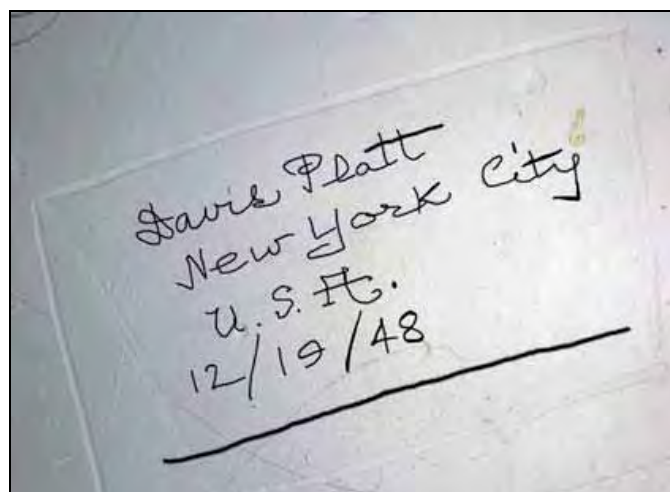 Davis Platt
New York City
U.S.A.
12/19/48